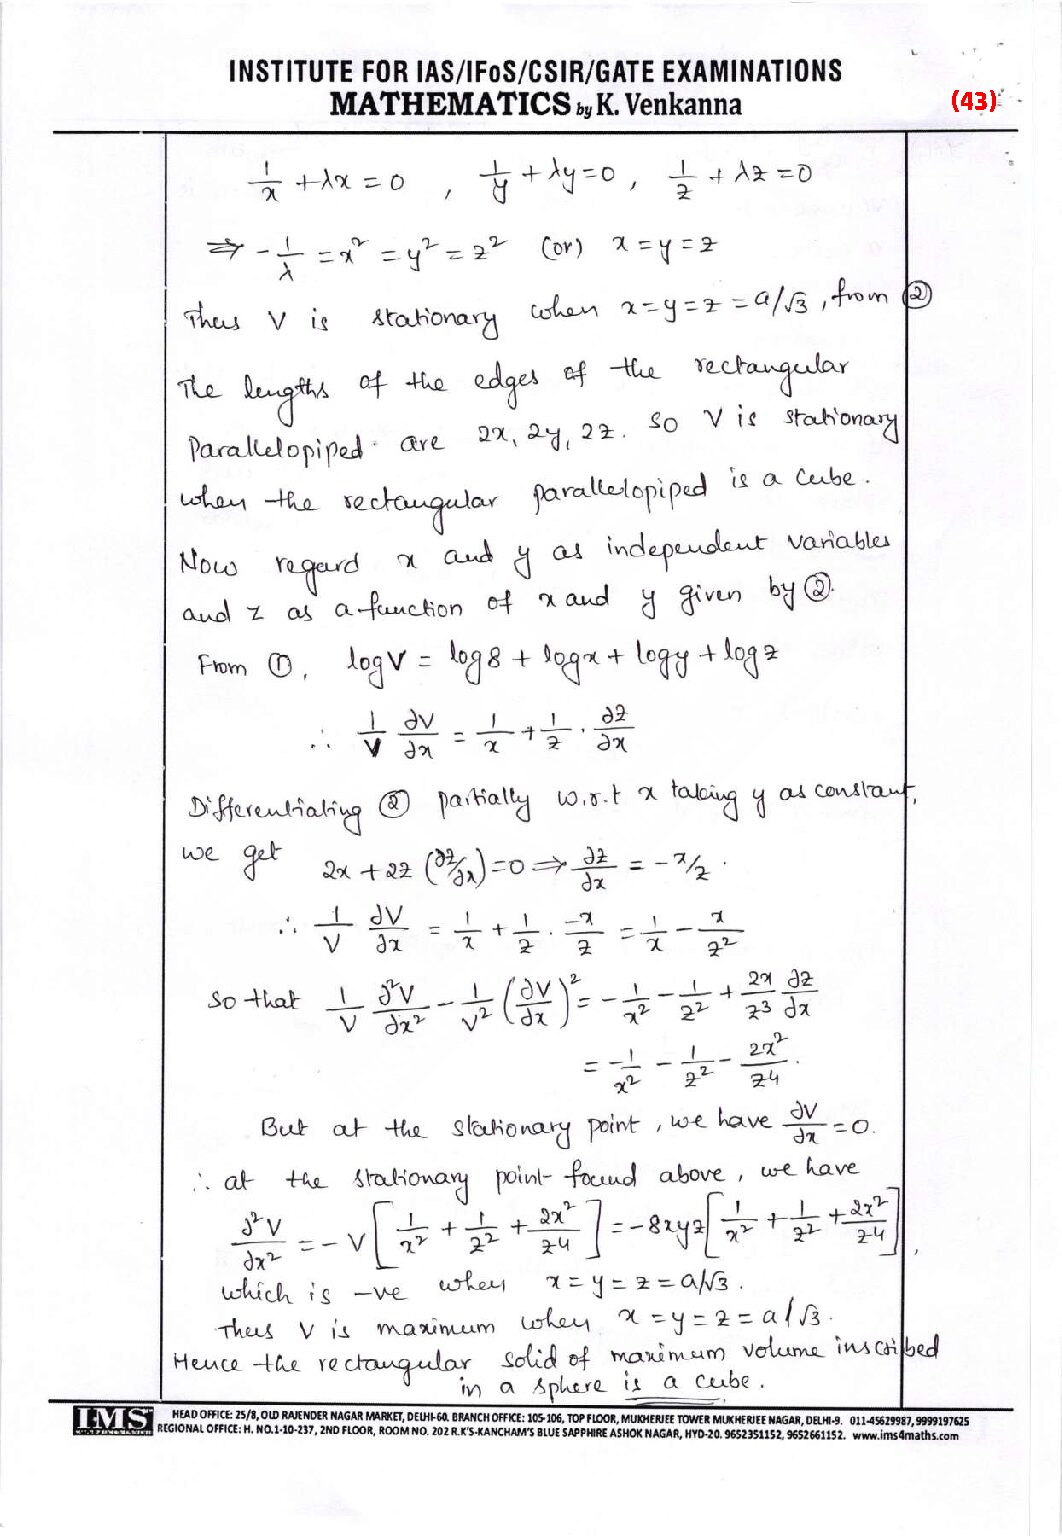 INSTITUTE FOR IAS/IFoS/CSIR/GATE EXAMINATIONS
MATHEMATICS by K. Venkanna
(43)
1/x + λx = 0 , 1/y + λy = 0 , 1/z + λz = 0
⇒ -1/λ = x² = y² = z² (or) x = y = z
Thus V is stationary when x = y = z = a/√3 , from ②
The lengths of the edges of the rectangular
Parallelopiped are 2x, 2y, 2z. So V is stationary
when the rectangular parallelopiped is a cube.
Now regard x and y as independent variables
and z as a function of x and y given by ②.
From ①, log V = log 8 + log x + log y + log z
∴ 1/V ∂V/∂x = 1/x + 1/z · ∂z/∂x
Differentiating ② partially w.r.t x taking y as constant,
we get 2x + 2z (∂z/∂x) = 0 ⇒ ∂z/∂x = -x/z .
∴ 1/V ∂V/∂x = 1/x + 1/z · -x/z = 1/x - x/z²
So that 1/V ∂²V/∂x² - 1/V² (∂V/∂x)² = -1/x² - 1/z² + 2x/z³ ∂z/∂x
= -1/x² - 1/z² - 2x²/z⁴ .
But at the stationary point , we have ∂V/∂x = 0.
∴ at the stationary point found above, we have
∂²V/∂x² = -V [1/x² + 1/z² + 2x²/z⁴] = -8xyz [1/x² + 1/z² + 2x²/z⁴] ,
which is -ve when x = y = z = a/√3 .
Thus V is maximum when x = y = z = a/√3 .
Hence the rectangular solid of maximum volume inscribed
in a sphere is a cube.
IMS
HEAD OFFICE: 25/8, OLD RAJENDER NAGAR MARKET, DELHI-60. BRANCH OFFICE: 105-106, TOP FLOOR, MUKHERJEE TOWER MUKHERJEE NAGAR, DELHI-9. 011-45629987, 9999197625
REGIONAL OFFICE: H. NO.1-10-237, 2ND FLOOR, ROOM NO. 202 R.K'S-KANCHAM'S BLUE SAPPHIRE ASHOK NAGAR, HYD-20. 9652351152, 9652661152. www.ims4maths.com